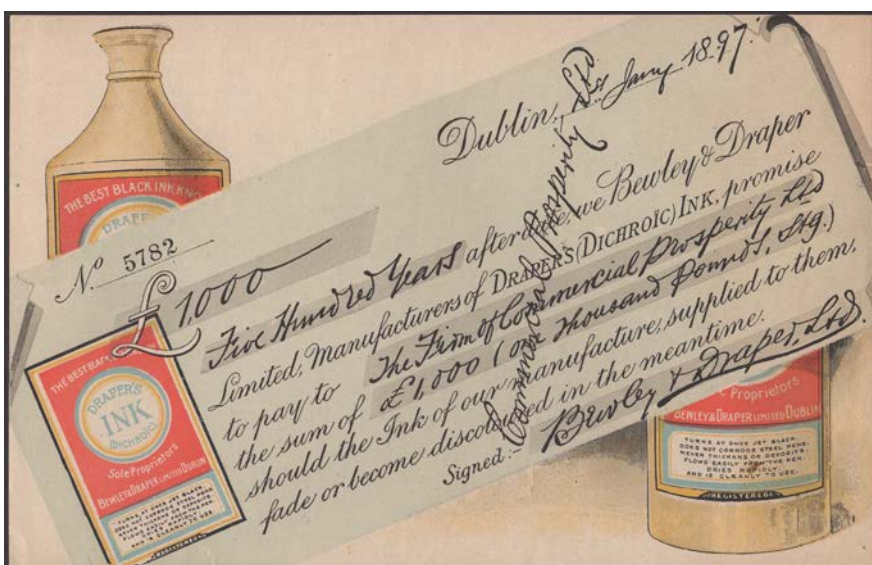 THE BEST BLACK INK KNO
DRAPE
Dublin, 1st Jany 1897.
No 5782
£1,000
Five Hundred Years after date, we Bewley & Draper
Limited, Manufacturers of DRAPER'S (DICHROÏC) INK, promise
to pay to The Firm of Commercial Prosperity Ltd
the sum of £1,000 (one Thousand Pounds, Stg.)
should the Ink of our manufacture, supplied to them,
fade or become discoloured in the meantime.
Signed:- Bewley & Draper, Ltd.
Commercial Prosperity Ltd
THE BEST BLACK
DRAPER'S
INK
(DICHROIC)
Sole Proprietors
BEWLEY & DRAPER LIMITED DUBLIN
TURNS AT ONCE JET BLACK.
DOES NOT CORRODE STEEL PENS.
NEVER THICKENS OR DEPOSITS.
FLOWS EASILY FROM THE PEN.
DRIES RAPIDLY.
AND IS CLEANLY TO USE.
Proprietors
BEWLEY & DRAPER LIMITED DUBLIN
TURNS AT ONCE JET BLACK.
DOES NOT CORRODE STEEL PENS.
NEVER THICKENS OR DEPOSITS.
FLOWS EASILY FROM THE PEN.
DRIES RAPIDLY.
AND IS CLEANLY TO USE.
REGISTERED